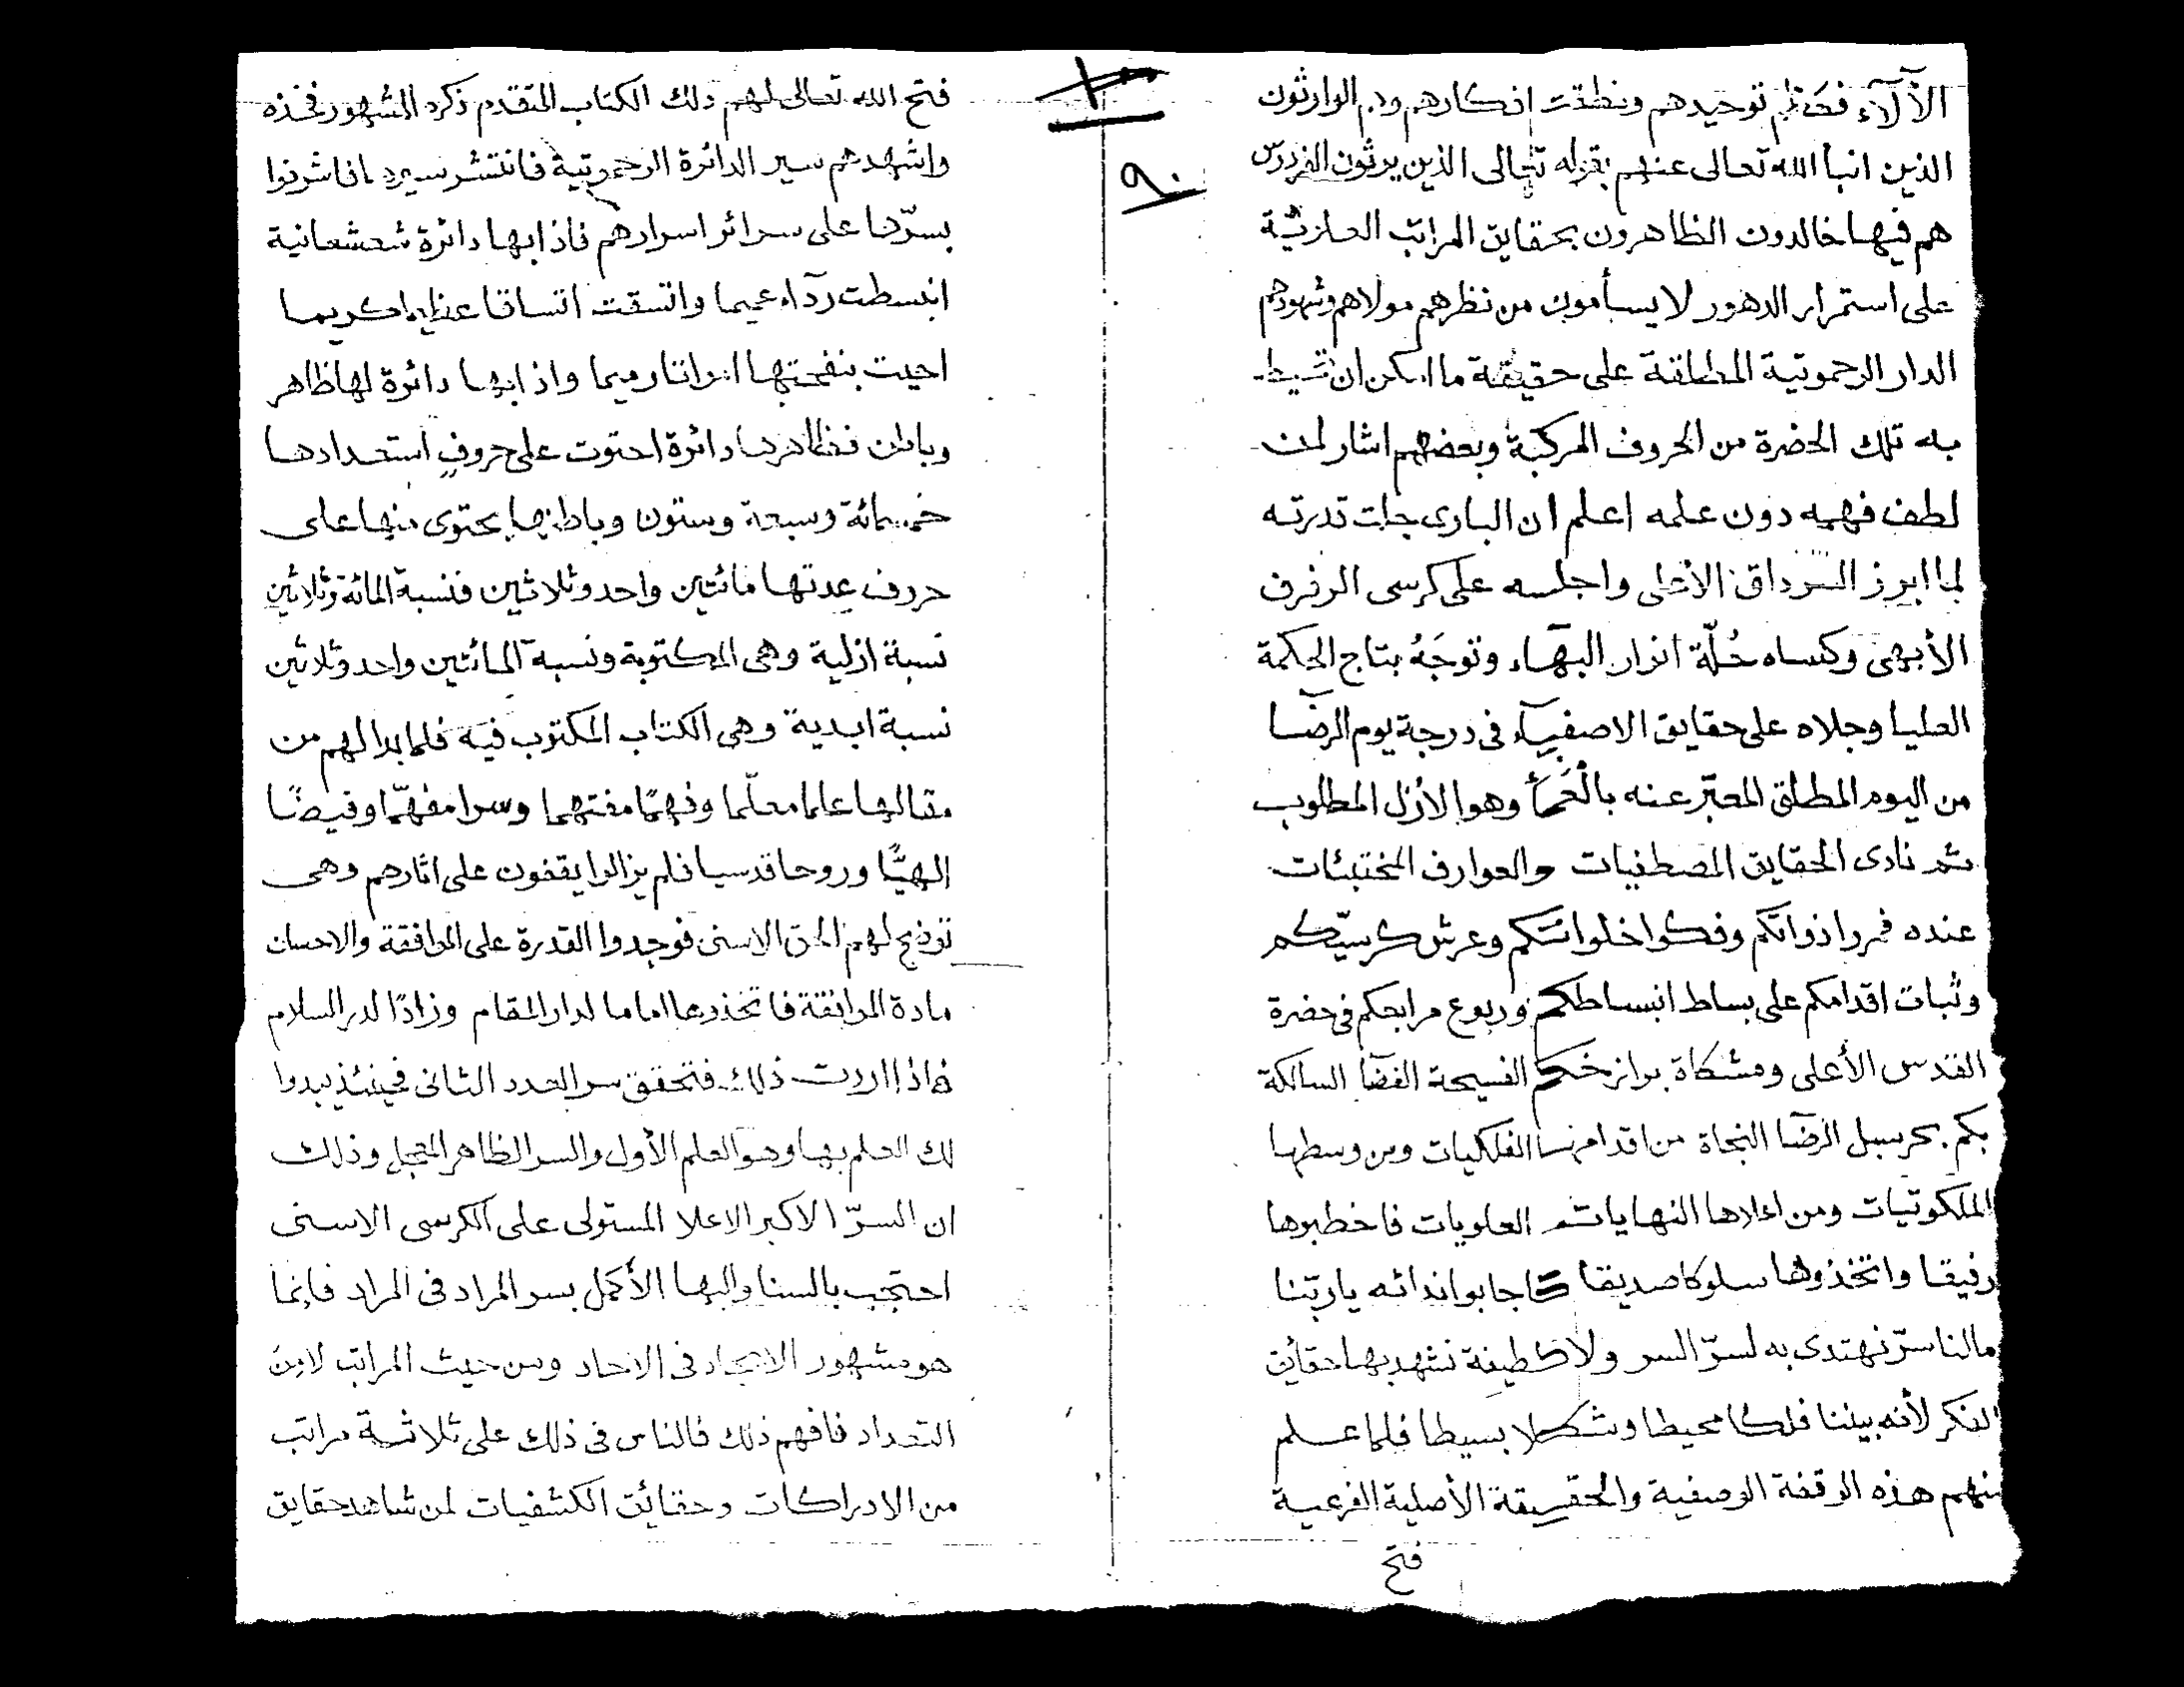 الآلاء فعظم توحيدهم ونطقت افكارهم وهم الوارثون
الذين انبأ الله تعالى عنهم بقوله تعالى الذين يرثون الفردوس
هم فيها خالدون الظاهرون بحقايق المراتب
على استمرار الدهور لا يسأمون من نظرهم مولاهم وشهودهم
الدار الرحموتية المطلقة على حقيقة ما امكن ان تحيط
به تلك الحضرة من الحروف المركبة وبعضهم اشار لمن
لطف فهمه دون علمه اعلم ان البارى جلت قدرته
لما ابرز السرداق الأعلى واجلسه على كرسى الرفرف
الأبهى وكساه حُلّة انوار البهاء وتوجَهُ بتاج الحكمة
العليا وجلاه على حقايق الاصفيآء فى درجة يوم الرضا
من اليوم المطلق المعبّر عنه بالعمأ وهو الأزل المطلوب
ثم نادى الحقايق المصطفيات والعوارف المختبئات
عنده ذواتكم وفكوا خلواتكم وعرش كرسيّكم
وثبات اقدامكم على بساط انبساطكم وربوع مرابعكم فى حضرة
القدس الأعلى ومشكاة برازخكم الفسيحة الفضآ السالكة
بكم بحر سبل الرضآ النجاة من الفلكيات ومن وسطها
الملكوتيات ومن اعلاها النهايات ثم العلويات فاخطبوها
رفيقا واتخذوها سلوكا صديقا فاجابوا ندائه يا ربّنا
مالنا سرّ نهتدى به لسرّ السر ولا لطيفة نشهد بها حقائق
الفكر لأنه بيننا فلكا محيطا وشكلا بسيطا فلما علم
منهم هذه الوقفة الوصفية والحقيقة الأصلية الفرعية
فتح
٩٠
فتح الله تعالى لهم ذلك الكتاب المتقدم ذكره المشهور فخذه
واشهدهم سير الدائرة الرحموتية فانتشر فاشرفوا
بسرّها على سرائر اسرارهم فاذا بها دائرة شعشعانية
انبسطت ردآء عميما واتسقت اتساقا عظيما كريما
احيت بنفحتها امواتا رميما واذا بها دائرة لها ظاهر
وباطن فظاهرها دائرة احتوت على حروفٍ استعدادها
خمسمائة وسبعة وستون وباطنها يحتوى منها على
حروف عدتها مائتين واحد وثلاثين فنسبة المائة وثلاثين
نسبة ازلية وهى المكتوبة ونسبة المائتين واحد وثلاثين
نسبة ابدية وهى الكتاب المكتوب فيه فلما بدا لهم من
مقالها علما معلّما وفهمًا مفتهما وسرا مفهّما وفيضًا
الهيًّا وروحا قدسيا فلم يزالوا يقفون على اثارهم وهى
توضح لهم الحق الاسنى فوجدوا القدرة على الموافقة والاحسان
مادة الموافقة فاتخذوها اماما لدار المقام وزادًا لدر السلام
فاذا اردت ذلك فتحقق سر العدد الثانى فحينئذ يبدوا
لك العلم بها وهو العلم الأول والسر الظاهر المتجلى وذلك
ان السرّ الاكبر الاعلا المستولى على الكرسى الاسنى
احتجب بالسنا والبها الأكمل بسر المراد فى المراد فانما
هو مشهور الايجاد فى الاحاد ومن حيث المراتب لا من
التعداد فافهم ذلك فالناس فى ذلك على ثلاثة مراتب
من الادراكات وحقائق الكشفيات لمن شاهد حقايق